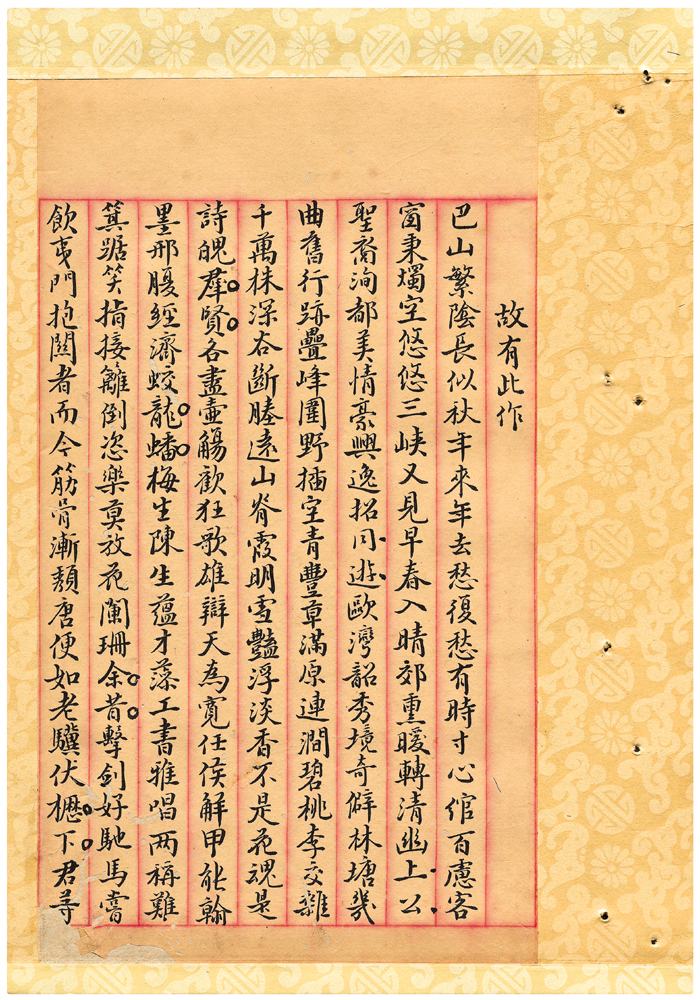 故有此作
巴山繁陰長似秋年來年去愁復愁有時寸心綰百慮客
窗秉燭空悠悠三峽又見早春入晴郊熏暖轉清幽上公
聖裔洵都美情豪興逸招同遊歐灣韶秀境奇僻林塘幾
曲舊行跡疊峰圍野插空青豐草滿原連澗碧桃李交雜
千萬株深谷斷塍遠山脊霞明雪豔浮淡香不是花魂是
詩魄羣賢各盡壺觴歡狂歌雄辯天為寬任侯解甲能翰
墨邢腹經濟蛟龍蟠梅生陳生蘊才藻工書雅唱两稱難
箕踞笑指接籬倒恣樂莫放花闌珊余昔擊劍好馳馬嘗
飲夷門抱關者而今筋骨漸頹唐便如老驥伏櫪下君等